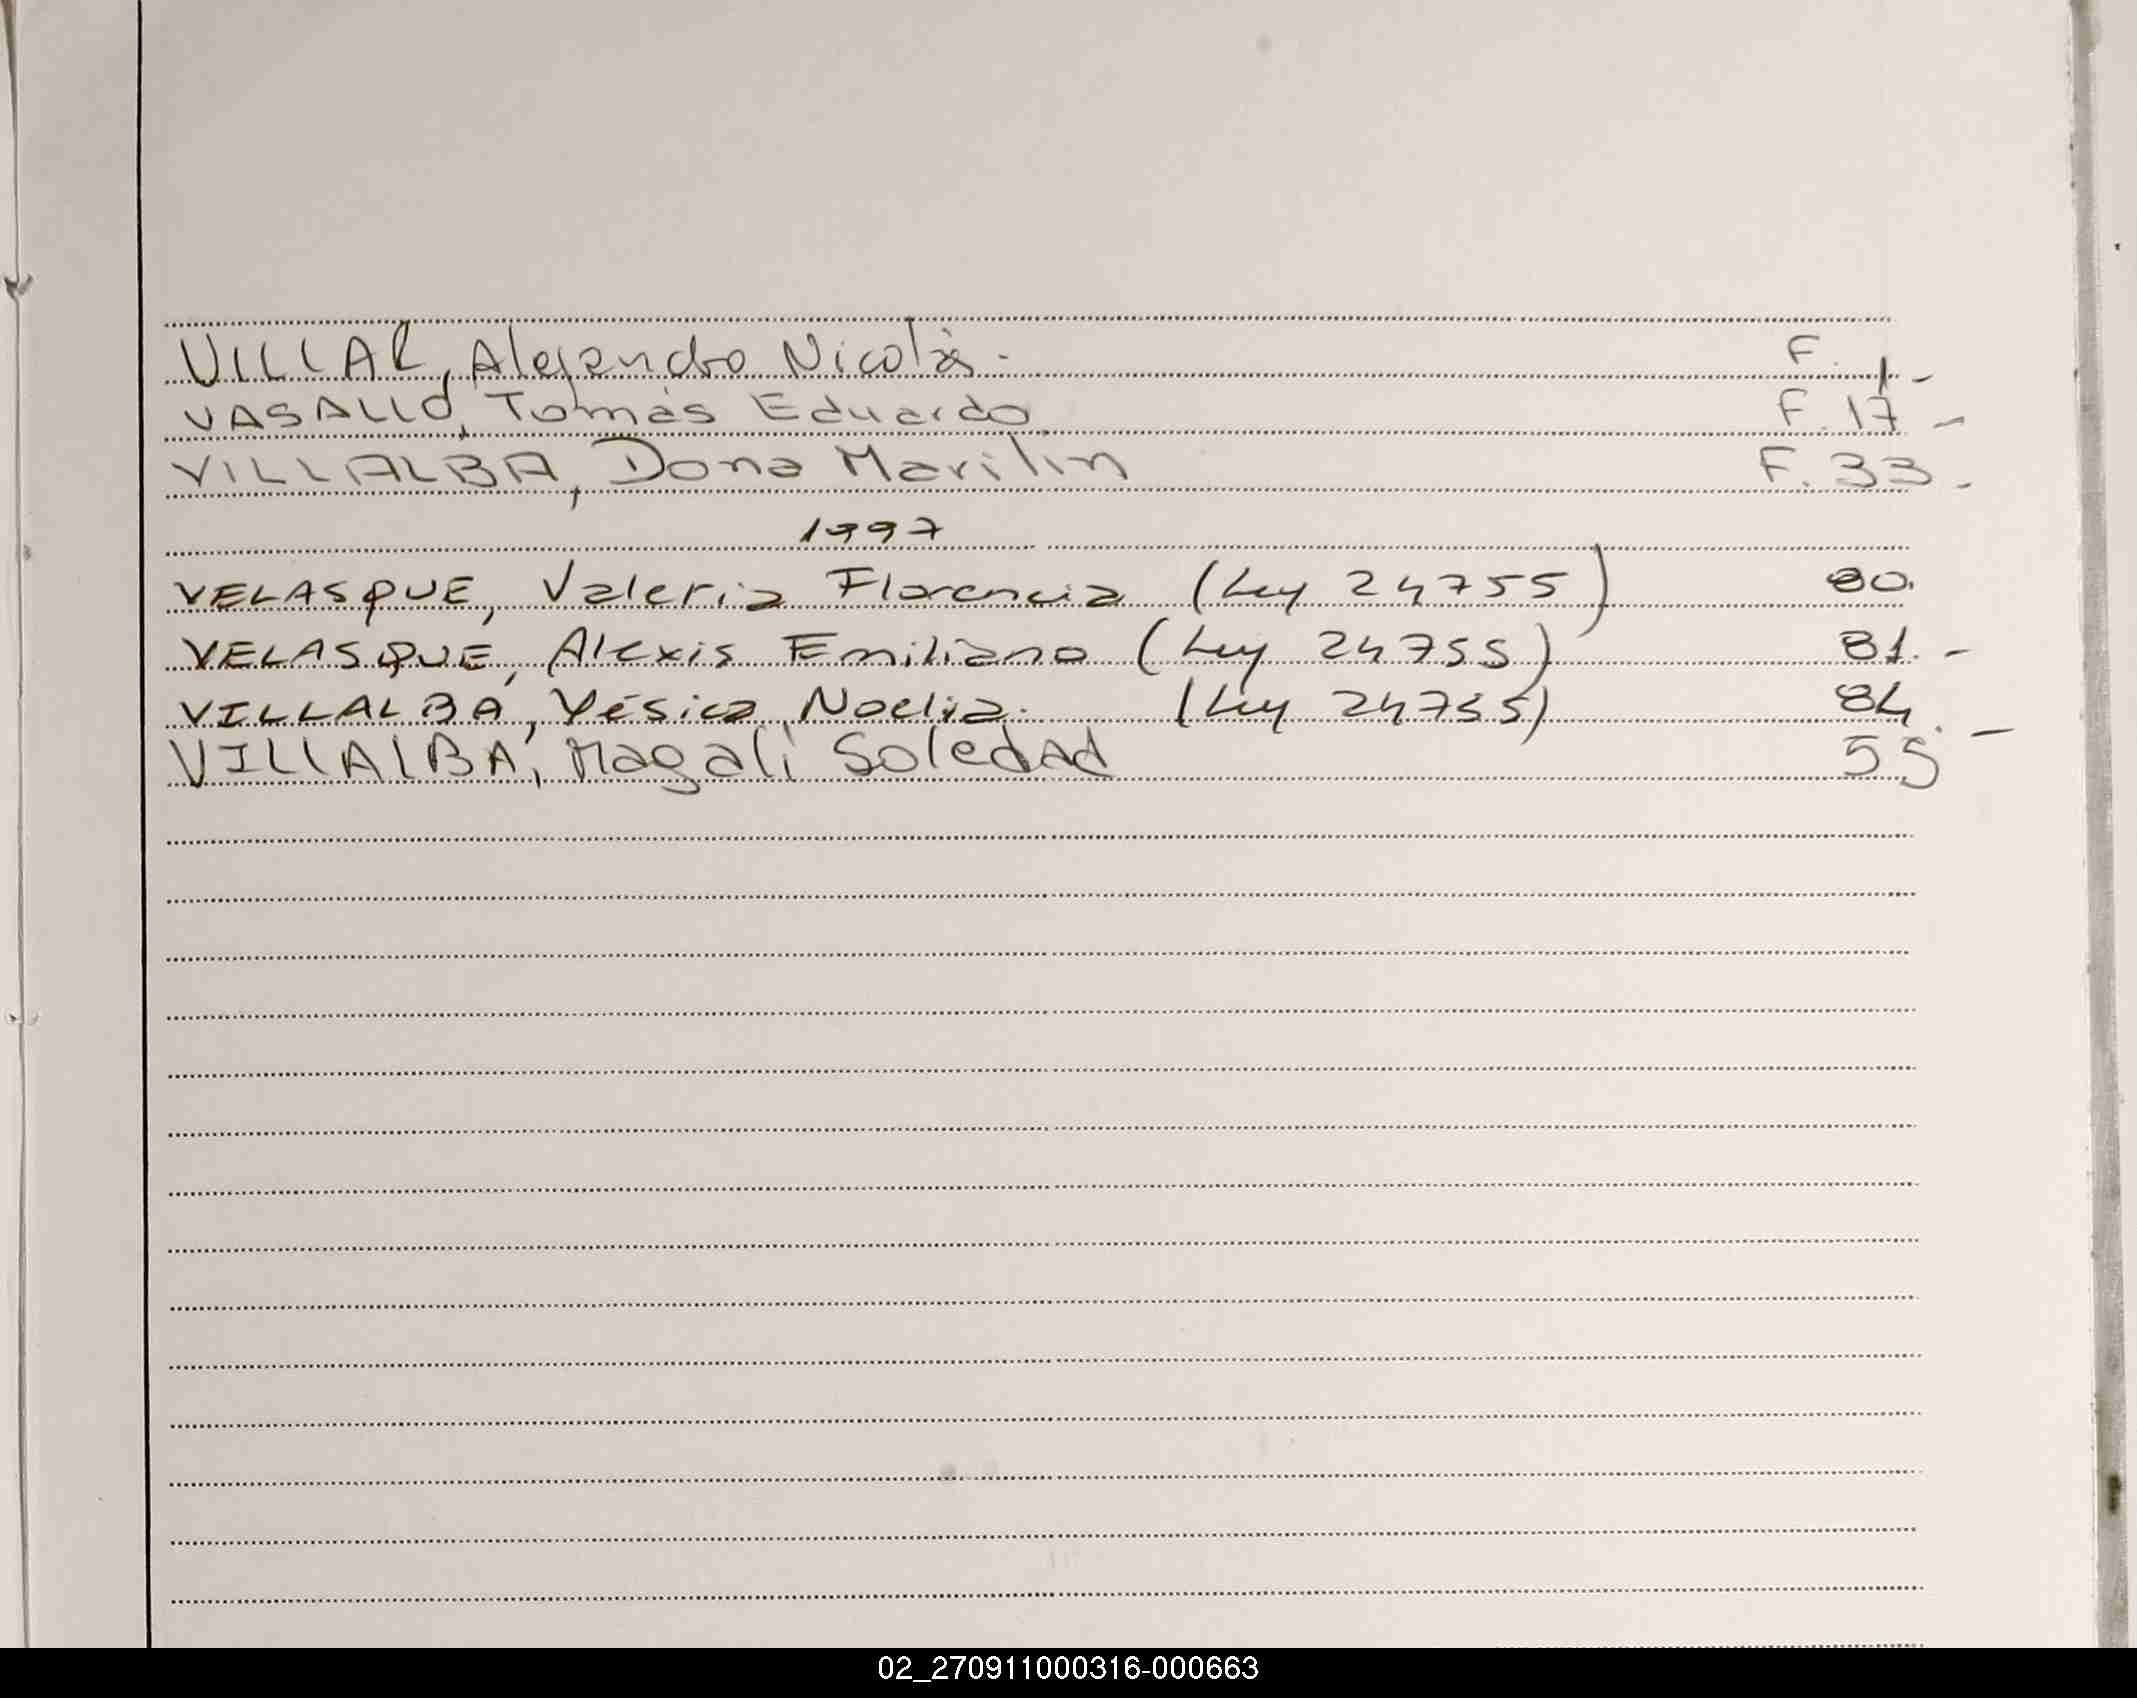 VILLAR, Alejandro Nicolás. F. 1 -
VASALLO, Tomás Eduardo F. 17 -
VILLALBA, Dona Marilin F. 33 -
1997
VELASQUE, Valeria Florencia (Ley 24755) 80.
VELASQUE, Alexis Emiliano (Ley 24755) 81. -
VILLALBA, Yésica Noelia. (Ley 24755) 84. -
VILLALBA, Magali Soledad 55
02_270911000316-000663